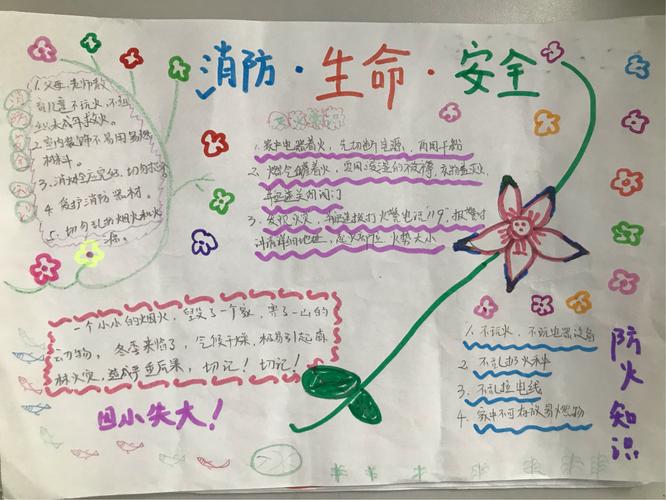 消防·生命·安全
1. 父母、老师教
育儿童不玩火、不组
织未成年救火。
2. 室内装饰不易用易燃
材料。
4. 爱护消防器材。
5. 切勿乱扔烟火和火
源。
1. 家中电器着火,先切断电源,再用干粉
2. 燃气罐着火,要用浸湿的被褥、衣物盖灭,
并迅速关闭阀门
3. 发现火灾,并迅速拨打火警电话"119",报警时
讲清详细地址,起火部位,火势大小
一个小小的烟火,毁了一个家,害了一山的
动物,冬季来临了,气候干燥,极易引起森
林火灾,造成严重后果,切记!切记!
因小失大!
1. 不玩火、不玩电器设备
2. 不乱扔火种
3. 不乱拉电线
4. 家中不可存放易燃物
防火知识